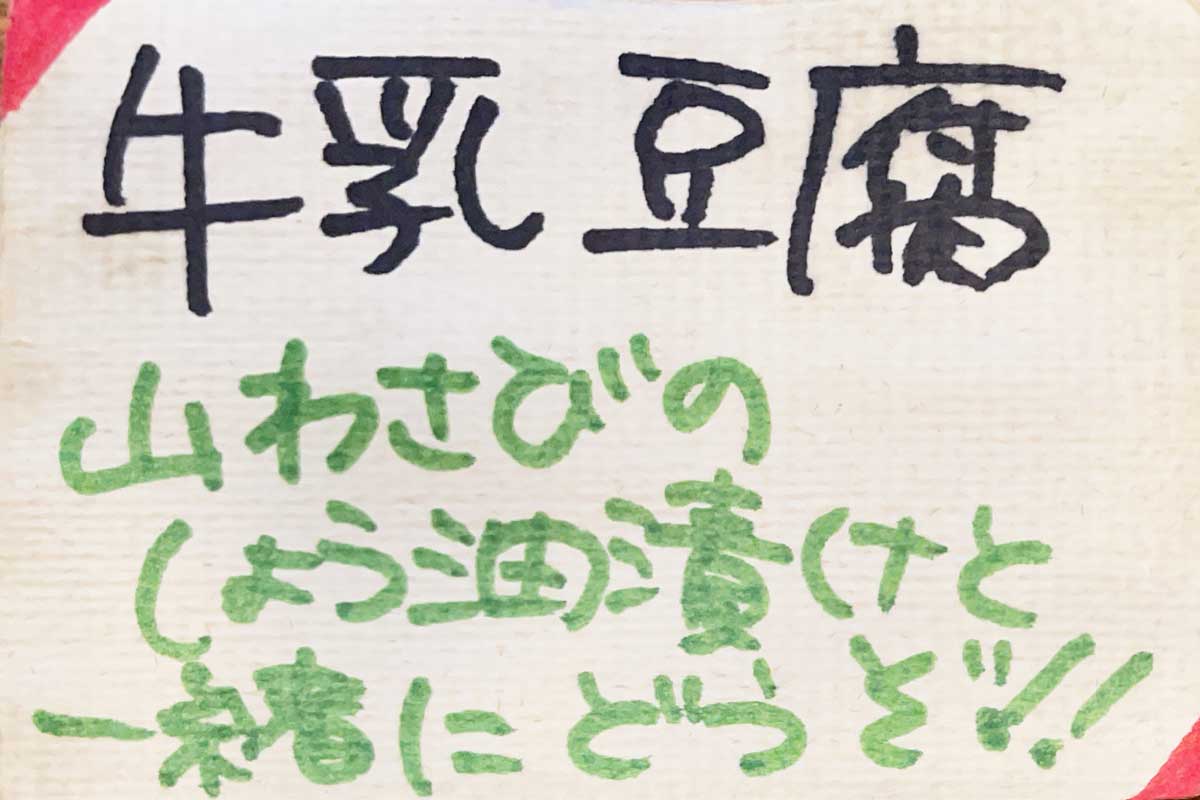 牛乳豆腐
山わさびの
しょう油漬けと
一緒にどうぞ!!